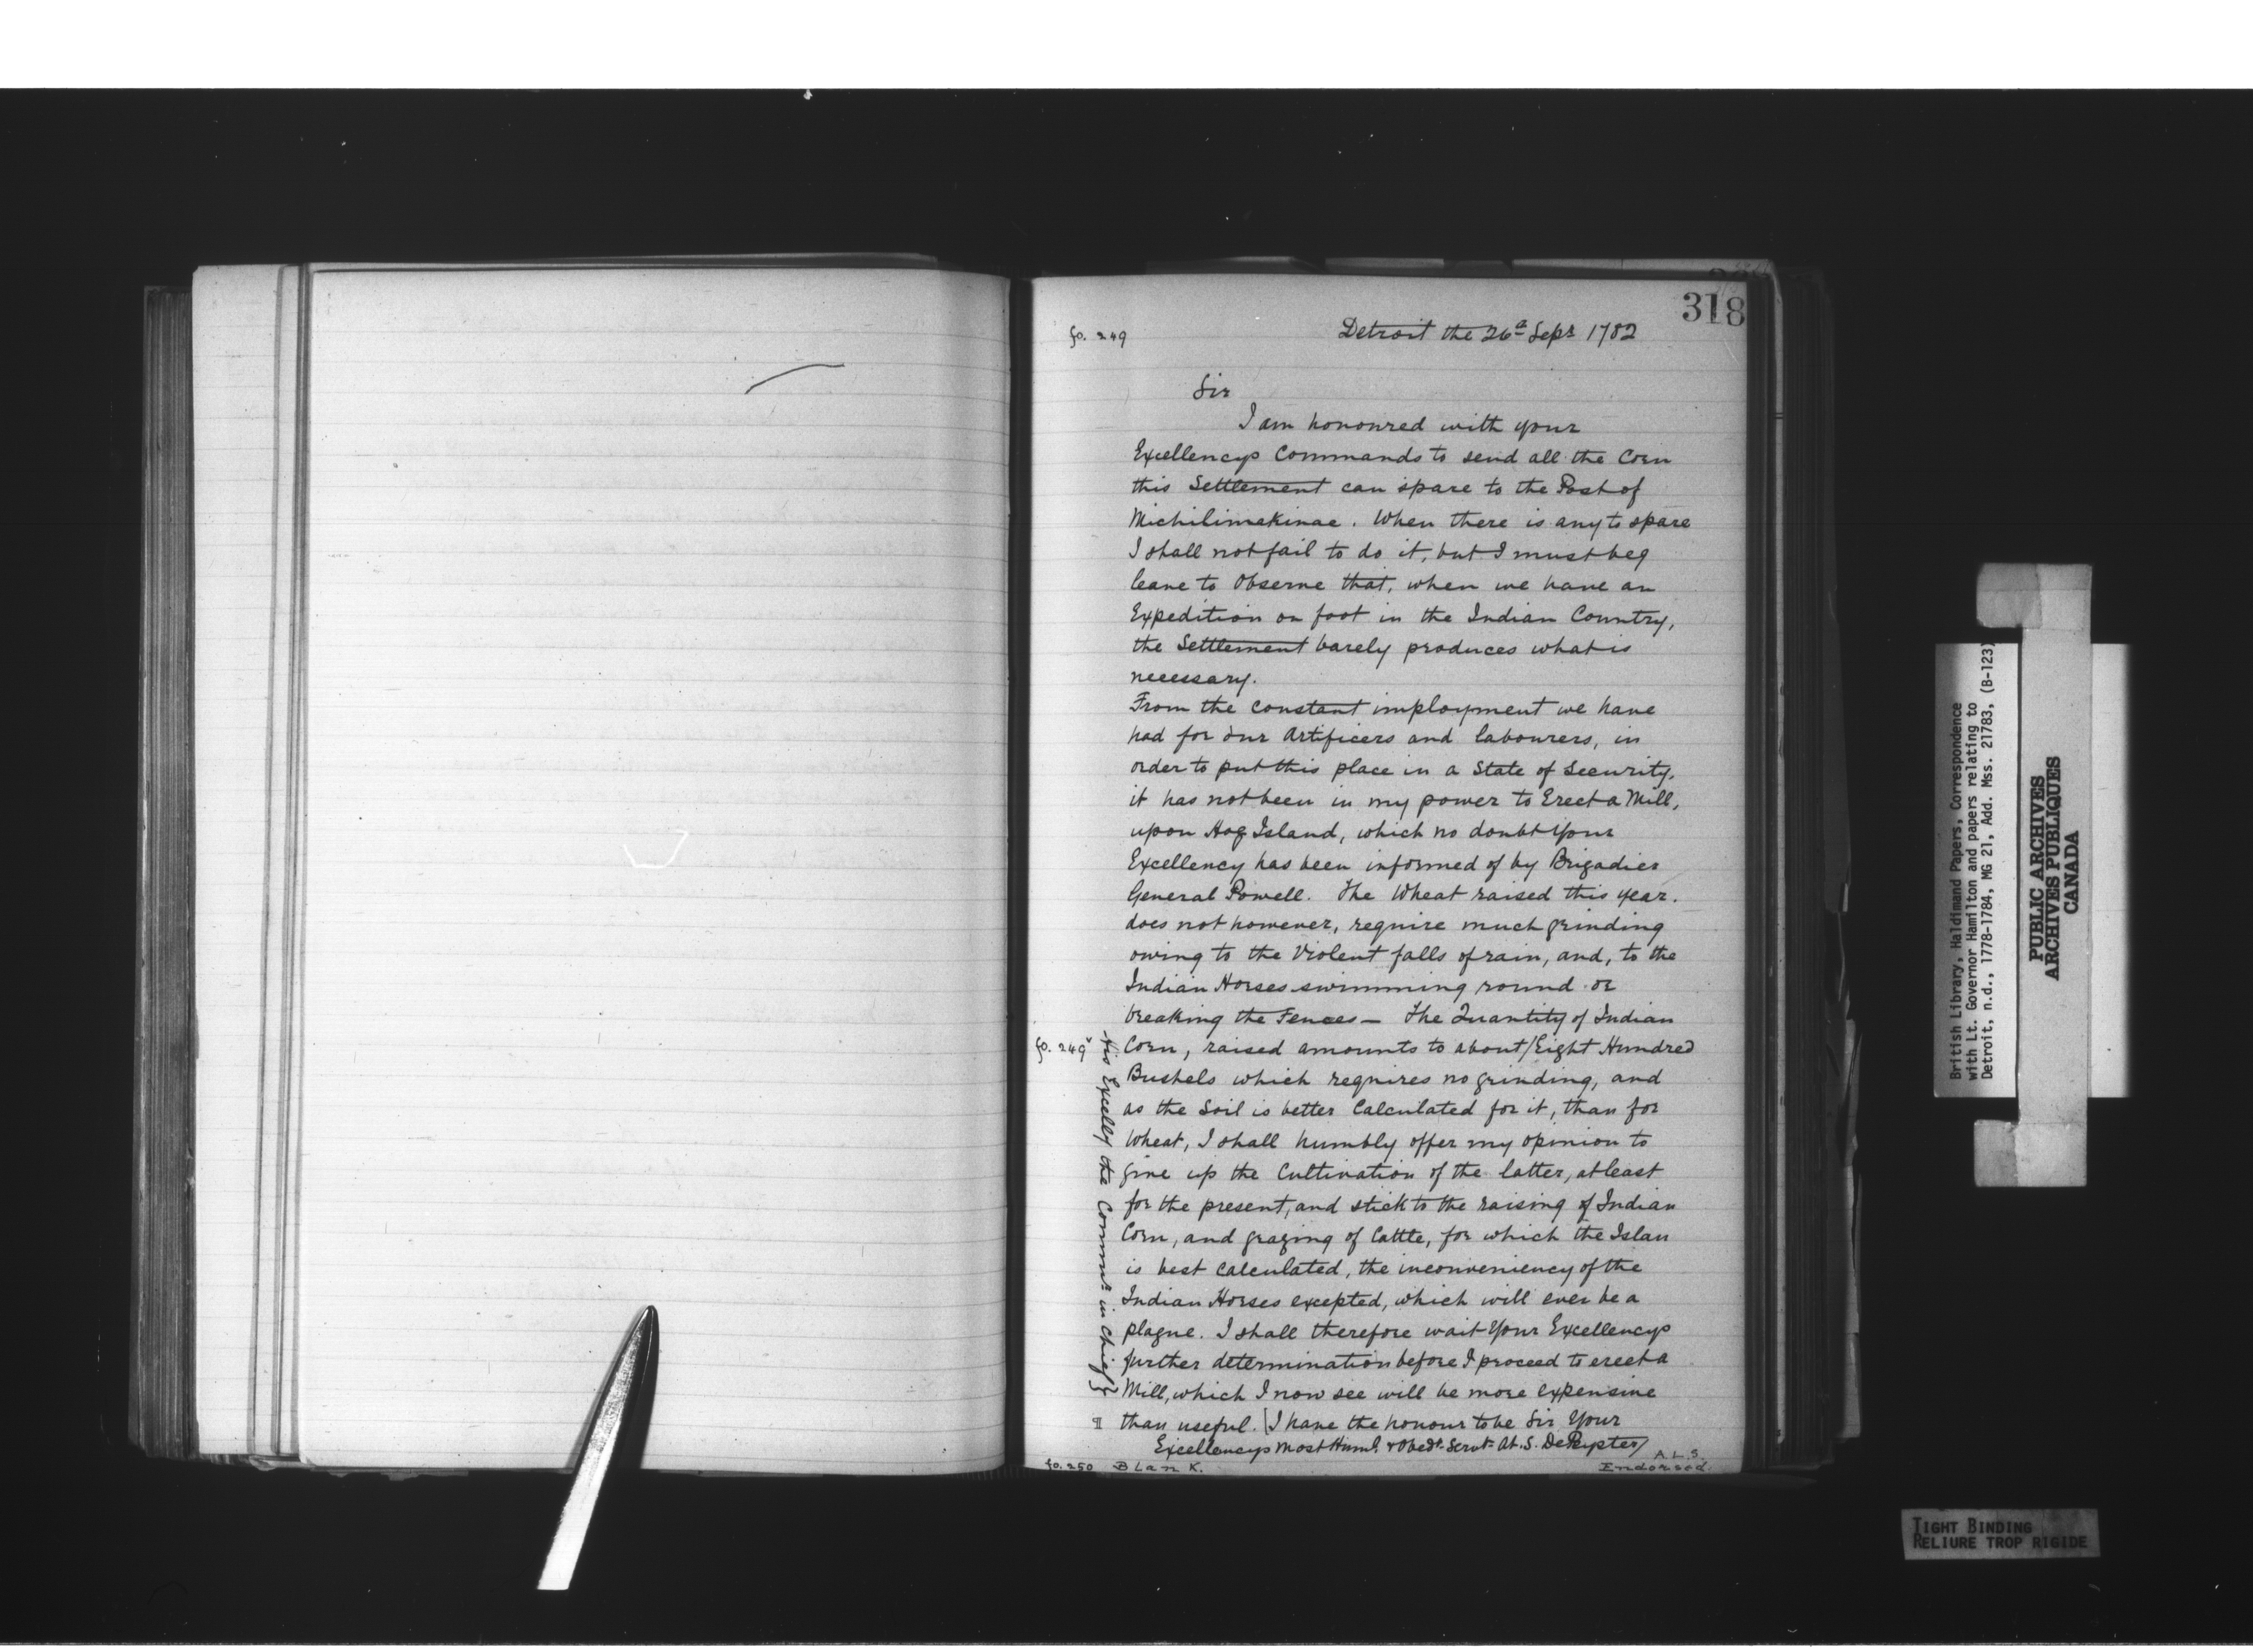 318
fo. 249
Detroit the 26th Sepr 1782
Sir
I am honoured with your
Excellencys Commands to send all the Corn
this Settlement can spare to the Post of
Michilimakinac. When there is any to spare
I shall not fail to do it, but I must beg
leave to Observe that, when we have an
Expedition on foot in the Indian Country,
the Settlement barely produces what is
necessary.
From the constant imployment we have
had for our Artificers and labourers, in
order to put this place in a State of Security,
it has not been in my power to Erect a Mill,
upon Hog Island, which no doubt Your
Excellency has been informed of by Brigadier
General Powell. The Wheat raised this year.
does not however, require much grinding
owing to the Violent falls of rain, and, to the
Indian Horses swimming round or
breaking the Fences — The Quantity of Indian
fo. 249v
Corn, raised amounts to about/Eight Hundred
Bushels which requires no grinding, and
as the Soil is better Calculated for it, than for
Wheat, I shall humbly offer my opinion to
give up the Cultivation of the latter, at least
for the present, and stick to the raising of Indian
Corn, and grazing of Cattle, for which the Islan
is best Calculated, the inconveniency of the
Indian Horses excepted, which will ever be a
plague. I shall therefore wait Your Excellencys
further determination before I proceed to erect a
Mill, which I now see will be more expensive
than useful. [I have the honour to be Sir Your
Excellencys Most Huml. & Obedt. Servt. At. S. DePeyster/
His Excelly the Commr. in Chief}
A.L.S.
fo. 250 Blank.
Endorsed.
British Library, Haldimand Papers, Correspondence
with Lt. Governor Hamilton and papers relating to
Detroit, n.d., 1778-1784, MG 21, Add. Mss. 21783, (B-123)
PUBLIC ARCHIVES
ARCHIVES PUBLIQUES
CANADA
TIGHT BINDING
RELIURE TROP RIGIDE